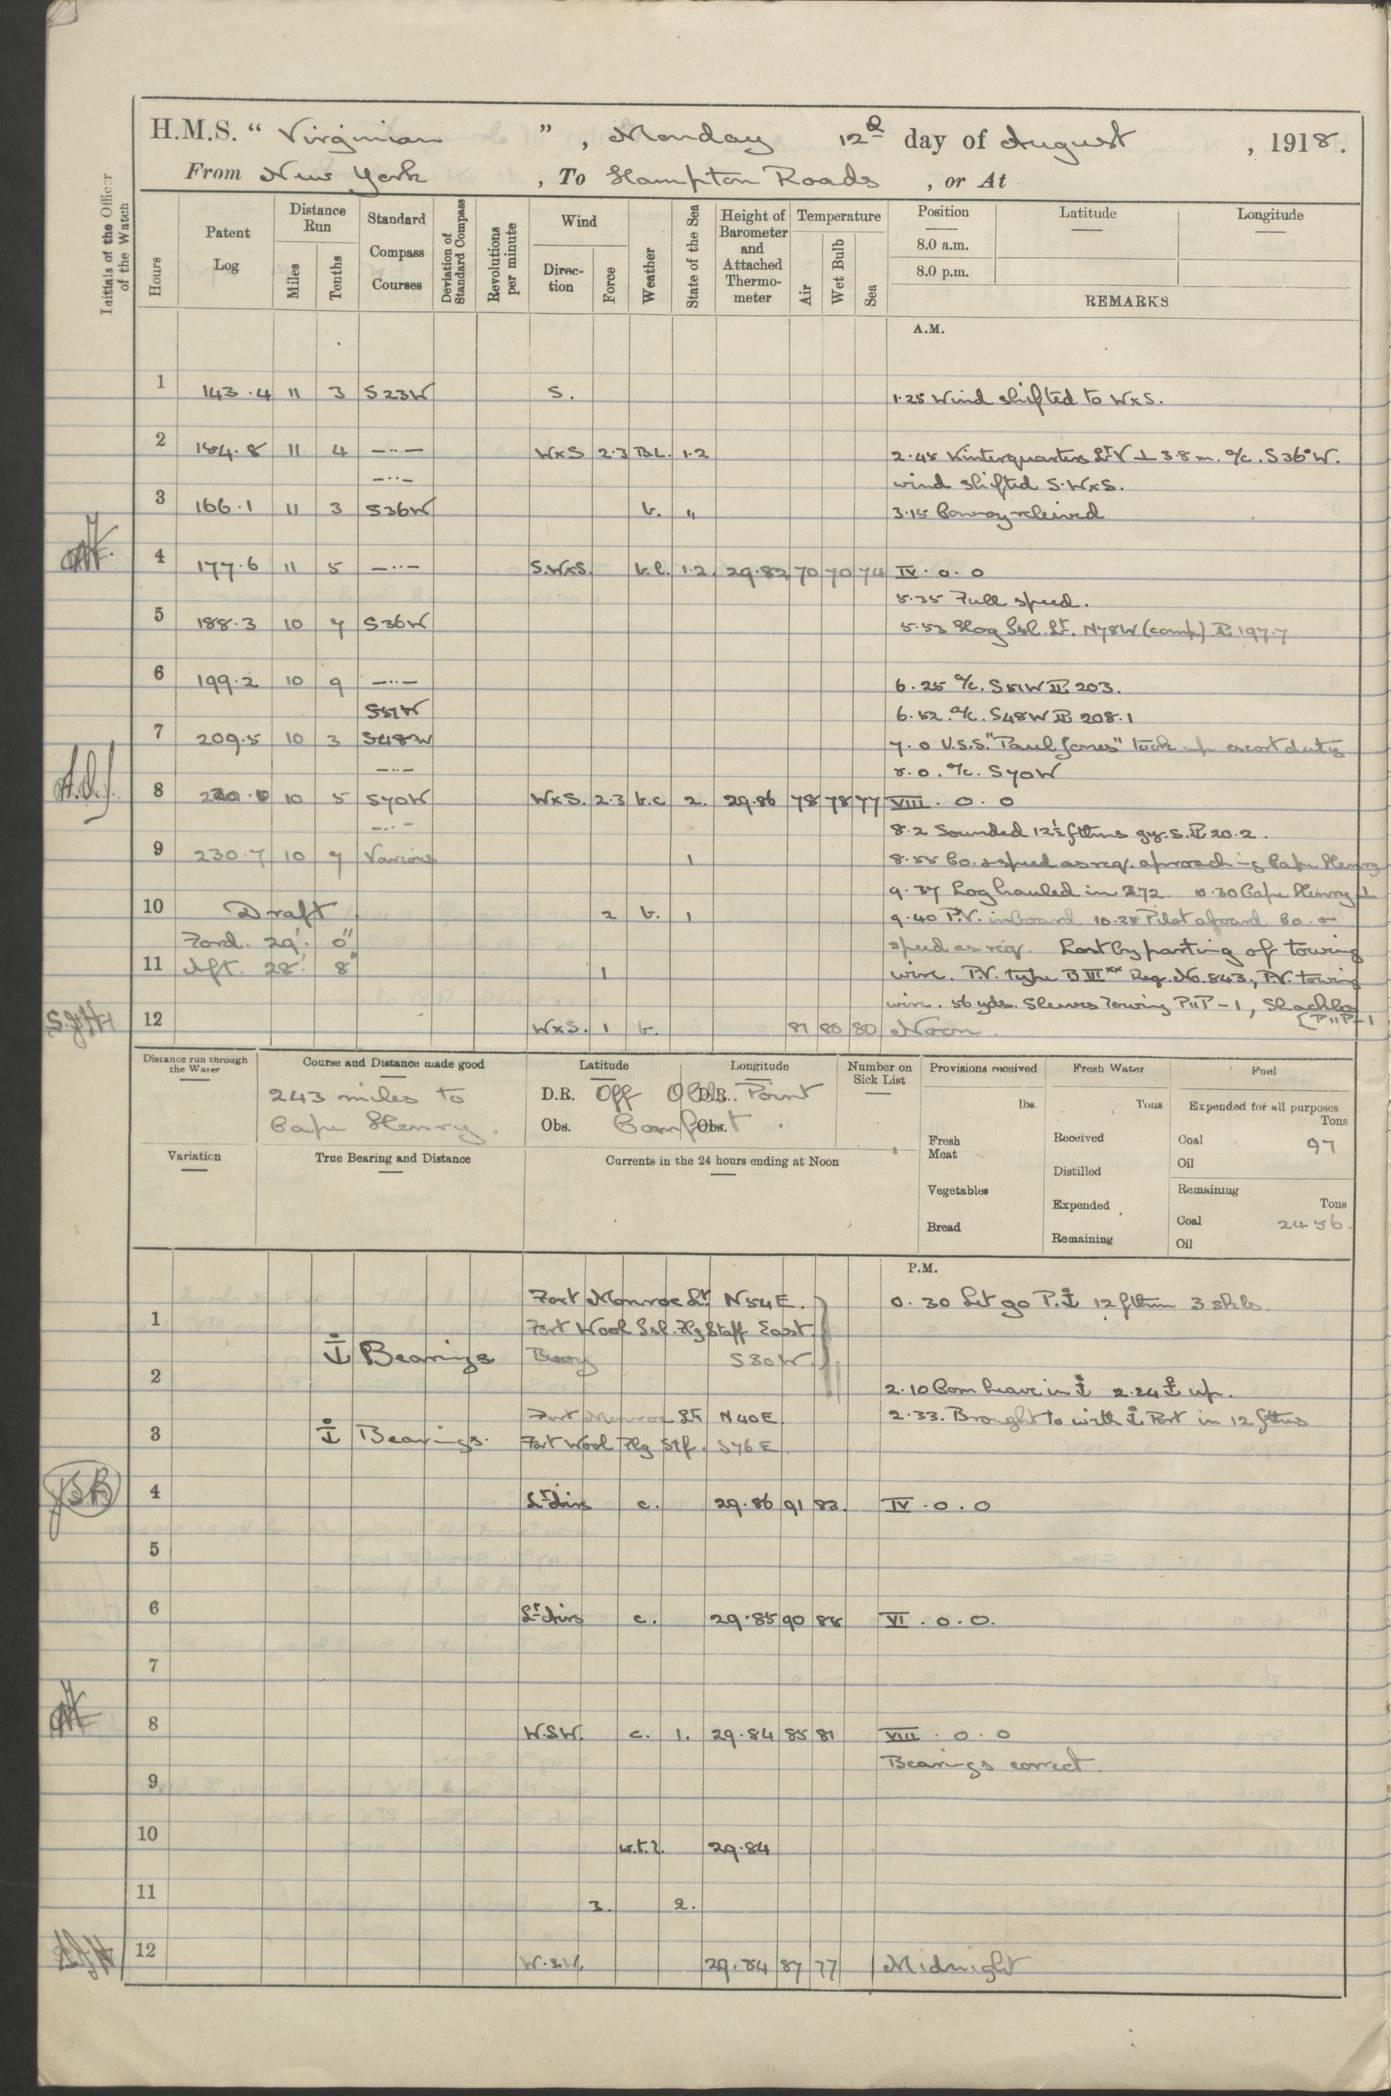 H.M.S. " Virginian " , Monday 12th day of August , 1918.
From New York , To Hampton Roads , or At
Initials of the Officer of the Watch
Hours
Patent Log
Distance Run
Miles
Tenths
Standard Compass Courses
Deviation of Standard Compass
Revolutions per minute
Wind
Direc-tion
Force
Weather
State of the Sea
Height of Barometer and Attached Thermo-meter
Temperature
Air
Wet Bulb
Sea
Position
Latitude
Longitude
8.0 a.m.
8.0 p.m.
REMARKS
A.M.
1 143.4 11 3 S23W S. 1.25 Wind shifted to WxS.
2 154.8 11 4 —··— WxS 2.3 B.L. 1.2 2.45 Winterquarters Lt V ⊥ 3.8 m. a/c. S36°W.
—··— wind shifted S.WxS.
3 166.1 11 3 S36W b. " 3.15 Convoy relieved
4 177.6 11 5 —··— S.WxS. b.c. 1.2 29.82 70 70 74 IV. 0. 0
5.35 Full speed.
5 188.3 10 7 S36W 5.53 Hog Isl. Lt. N78W (comp) PL 197.7
6 199.2 10 9 —··— 6.25 a/c. S51W PL 203.
S51W 6.52. a/c. S48W PL 208.1
7 209.5 10 3 S48W 7.0 U.S.S. "Paul Jones" took up escort duty
—··— 8.0. a/c. S70W
8 220.0 10 5 S70W WxS. 2.3 b.c 2. 29.86 78 78 77 VIII. 0. 0
—··— 8.2 Sounded 12½ fthms gy. S. PL 20.2.
9 230.7 10 7 Various 1 8.55 Co. & speed as req. aproaching Cape Henry
9.37 Log hauled in 272 10.30 Cape Henry ⊥
10 Draft 2 b. 1 9.40 P.V. inboard 10.38 Pilot aboard Co. &
Ford. 29' 0" speed as req. Lost by parting of towing
11 Aft. 28' 8" 1 wire. P.V. type B VII** Reg. No. 843, P.V. towing
wire. 56 yds. Sleeves Towing P11P-1, Shackles
12 WxS. 1 b. 81 80 80 Noon. [P11P-1
Distance run through the Water
Course and Distance made good
Latitude
Longitude
Number on Sick List
Provisions received
Fresh Water
Fuel
243 miles to
Cape Henry.
D.R. Off Old D.R. Point
Obs. Comfort Obs.
lbs.
Tons
Expended for all purposes
Tons
Fresh Meat
Received
Coal 97
Oil
Distilled
Variation
True Bearing and Distance
Currents in the 24 hours ending at Noon
Vegetables
Expended
Remaining
Tons
Bread
Remaining
Coal 2456.
Oil
P.M.
Fort Monroe Lt. N54E. 0.30 Let go P.⚓ 12 fthm 3 shkls.
1 Fort Wool Isl. Flg Staff East.
⚓ Bearings Buoy S30W.
2 2.10 Com heave in ⚓ 2.24 ⚓ up.
Fort Monroe Lt N40E. 2.33. Brought to with ⚓ Port in 12 fthms
3 ⚓ Bearings. Fort Wool Flg Stf. S76E
4 Lt airs c. 29.86 91 83. IV. 0. 0
5
6 Lt airs c. 29.85 90 88 VI. 0. 0.
7
8 W.SW. c. 1. 29.84 85 81 VIII. 0. 0
Bearings correct.
9
10 29.84
11 3. 2.
12 W.S.W. 29.84 87 77 Midnight